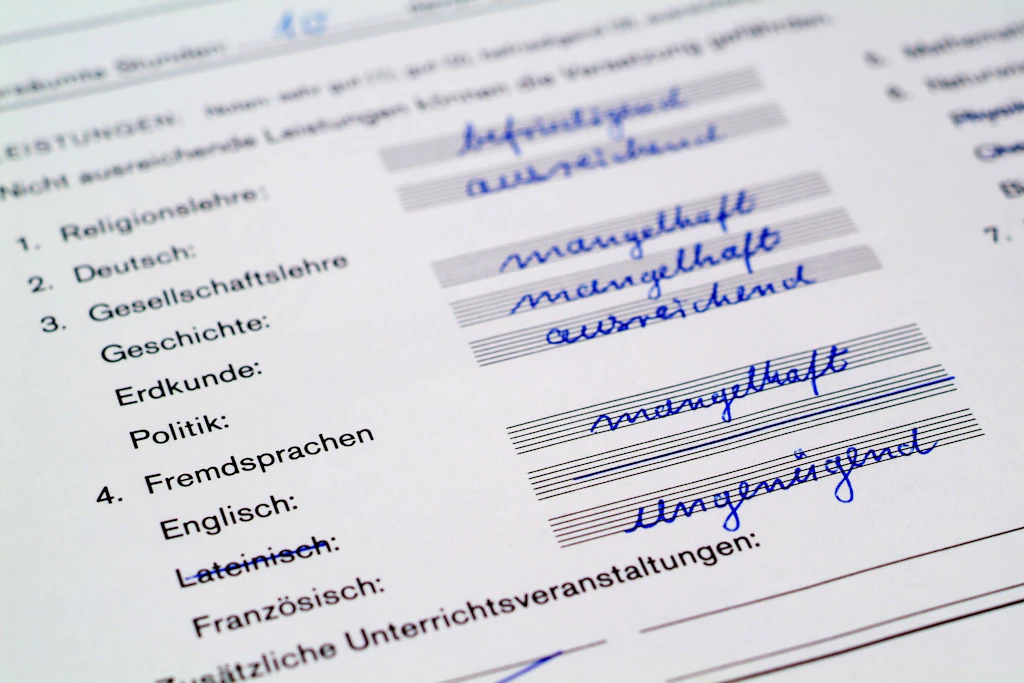 Stunden: 10
LEISTUNGEN: Noten: sehr gut (1), gut (2), befriedigend (3),
Nicht ausreichende Leistungen können die Versetzung gefährden.
1. Religionslehre: befriedigend
2. Deutsch: ausreichend
3. Gesellschaftslehre
Geschichte: mangelhaft
Erdkunde: mangelhaft
Politik: ausreichend
4. Fremdsprachen
Englisch: mangelhaft
Lateinisch:
Französisch: ungenügend
Zusätzliche Unterrichtsveranstaltungen:
5. Mathemat
6. Naturwi
Physik
Che
B
7.